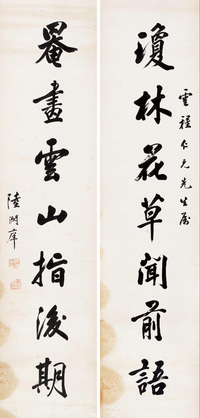 雲程仁兄先生属
瓊林花草聞前語
罨畫雲山指後期
陸潤庠